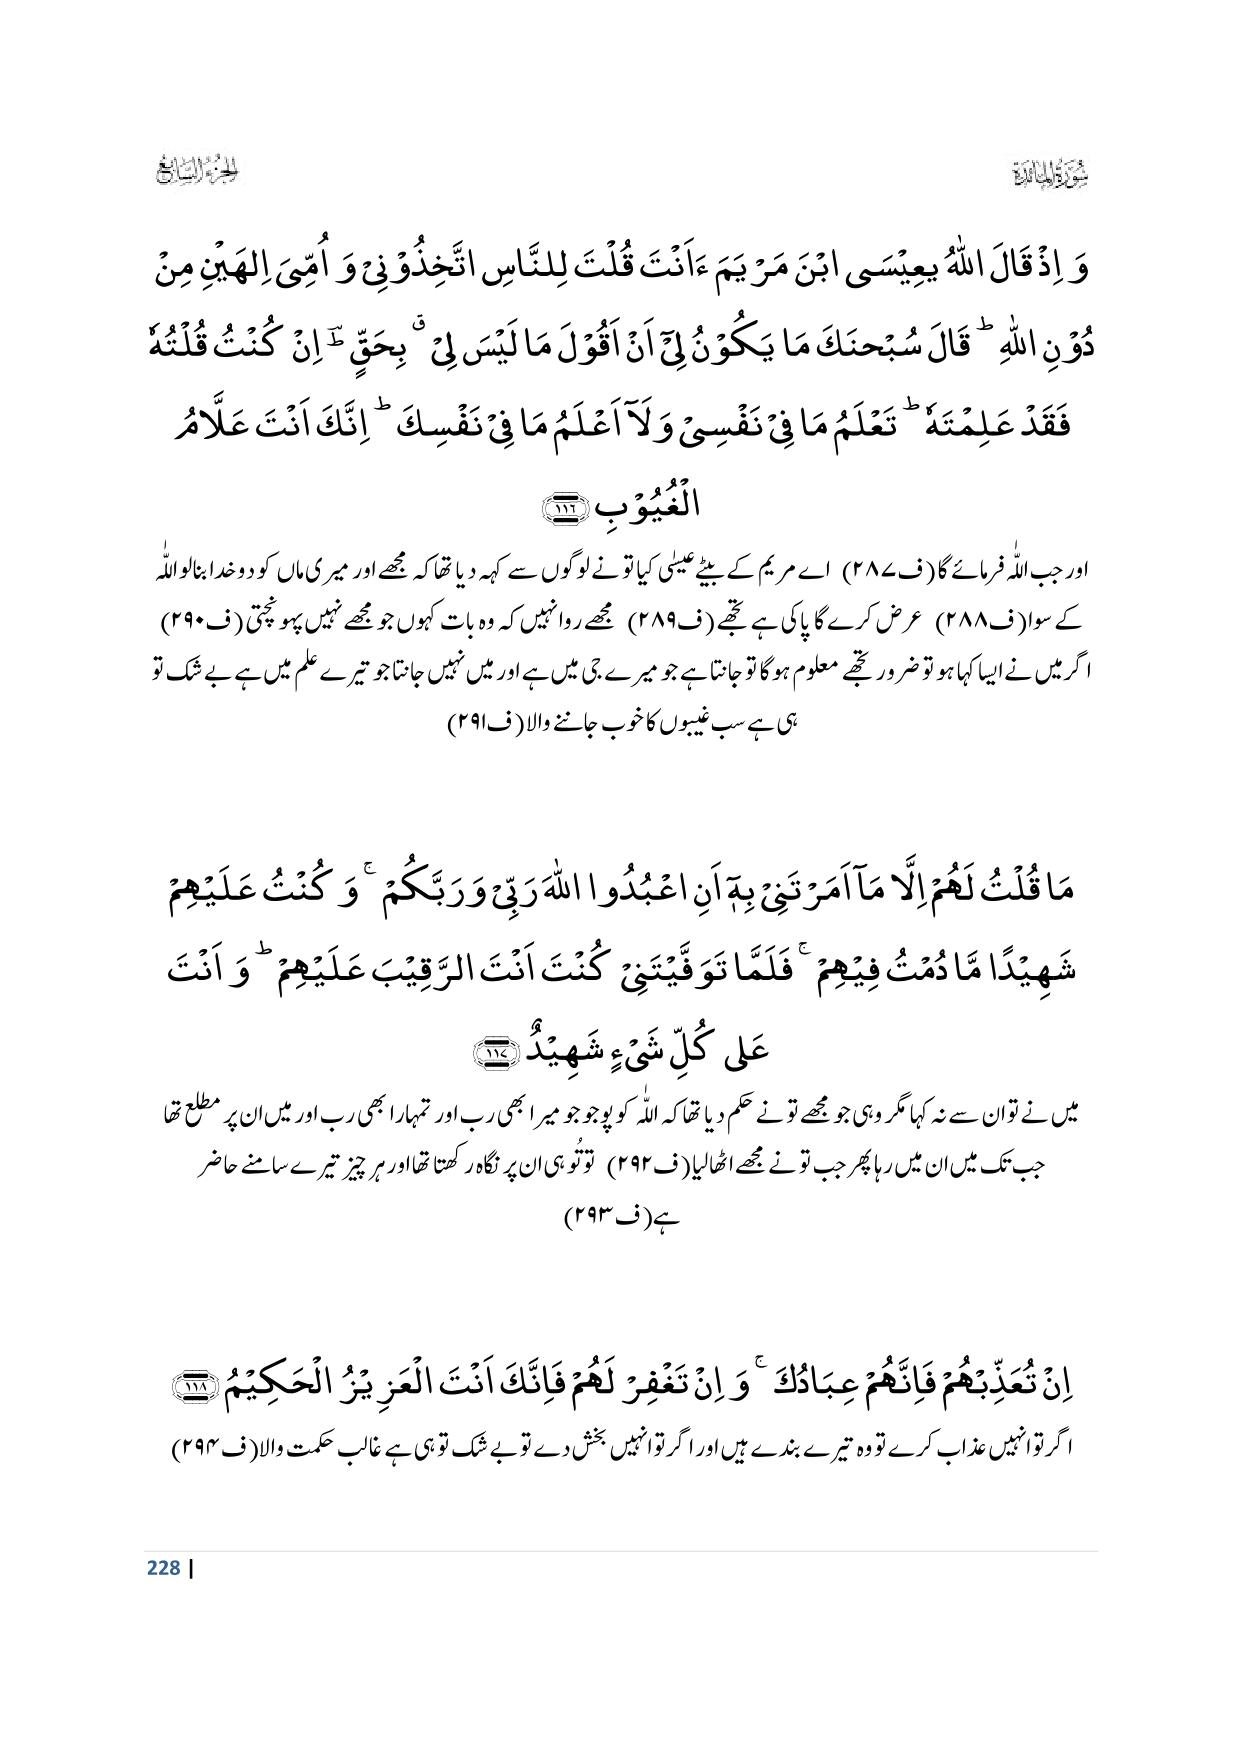 سُوْرَةُ الْمَائِدَة
الجزء السابع
وَ اِذْ قَالَ اللّٰهُ یٰعِیْسَى ابْنَ مَرْیَمَ ءَاَنْتَ قُلْتَ لِلنَّاسِ اتَّخِذُوْنِیْ وَ اُمِّیَ اِلٰهَیْنِ مِنْ
دُوْنِ اللّٰهِ ؕ قَالَ سُبْحٰنَكَ مَا یَكُوْنُ لِیْۤ اَنْ اَقُوْلَ مَا لَیْسَ لِیْ ۗ بِحَقٍّ ؔؕ اِنْ كُنْتُ قُلْتُهٗ
فَقَدْ عَلِمْتَهٗ ؕ تَعْلَمُ مَا فِیْ نَفْسِیْ وَ لَاۤ اَعْلَمُ مَا فِیْ نَفْسِكَ ؕ اِنَّكَ اَنْتَ عَلَّامُ
الْغُیُوْبِ ﴿۱۱۶﴾
اور جب اللّٰہ فرمائے گا (ف۲۸۷) اے مریم کے بیٹے عیسٰی کیا تو نے لوگوں سے کہہ دیا تھا کہ مجھے اور میری ماں کو دو خدا بنالو اللّٰہ
کے سوا (ف۲۸۸) عرض کرے گا پاکی ہے تجھے (ف۲۸۹) مجھے روا نہیں کہ وہ بات کہوں جو مجھے نہیں پہونچتی (ف۲۹۰)
اگر میں نے ایسا کہا ہو تو ضرور تجھے معلوم ہوگا تو جانتا ہے جو میرے جی میں ہے اور میں نہیں جانتا جو تیرے علم میں ہے بے شک تو
ہی ہے سب غیبوں کا خوب جاننے والا (ف۲۹۱)
مَا قُلْتُ لَهُمْ اِلَّا مَاۤ اَمَرْتَنِیْ بِهٖۤ اَنِ اعْبُدُوا اللّٰهَ رَبِّیْ وَ رَبَّكُمْ ۚ وَ كُنْتُ عَلَیْهِمْ
شَهِیْدًا مَّا دُمْتُ فِیْهِمْ ۚ فَلَمَّا تَوَفَّیْتَنِیْ كُنْتَ اَنْتَ الرَّقِیْبَ عَلَیْهِمْ ؕ وَ اَنْتَ
عَلٰى كُلِّ شَیْءٍ شَهِیْدٌ ﴿۱۱۷﴾
میں نے تو ان سے نہ کہا مگر وہی جو مجھے تو نے حکم دیا تھا کہ اللّٰہ کو پوجو جو میرا بھی رب اور تمہارا بھی رب اور میں ان پر مطلع تھا
جب تک میں ان میں رہا پھر جب تو نے مجھے اٹھالیا (ف۲۹۲) تو تُو ہی ان پر نگاہ رکھتا تھا اور ہر چیز تیرے سامنے حاضر
ہے (ف۲۹۳)
اِنْ تُعَذِّبْهُمْ فَاِنَّهُمْ عِبَادُكَ ۚ وَ اِنْ تَغْفِرْ لَهُمْ فَاِنَّكَ اَنْتَ الْعَزِیْزُ الْحَكِیْمُ ﴿۱۱۸﴾
اگر تو انہیں عذاب کرے تو وہ تیرے بندے ہیں اور اگر تو انہیں بخش دے تو بے شک تو ہی ہے غالب حکمت والا (ف۲۹۴)
228 |